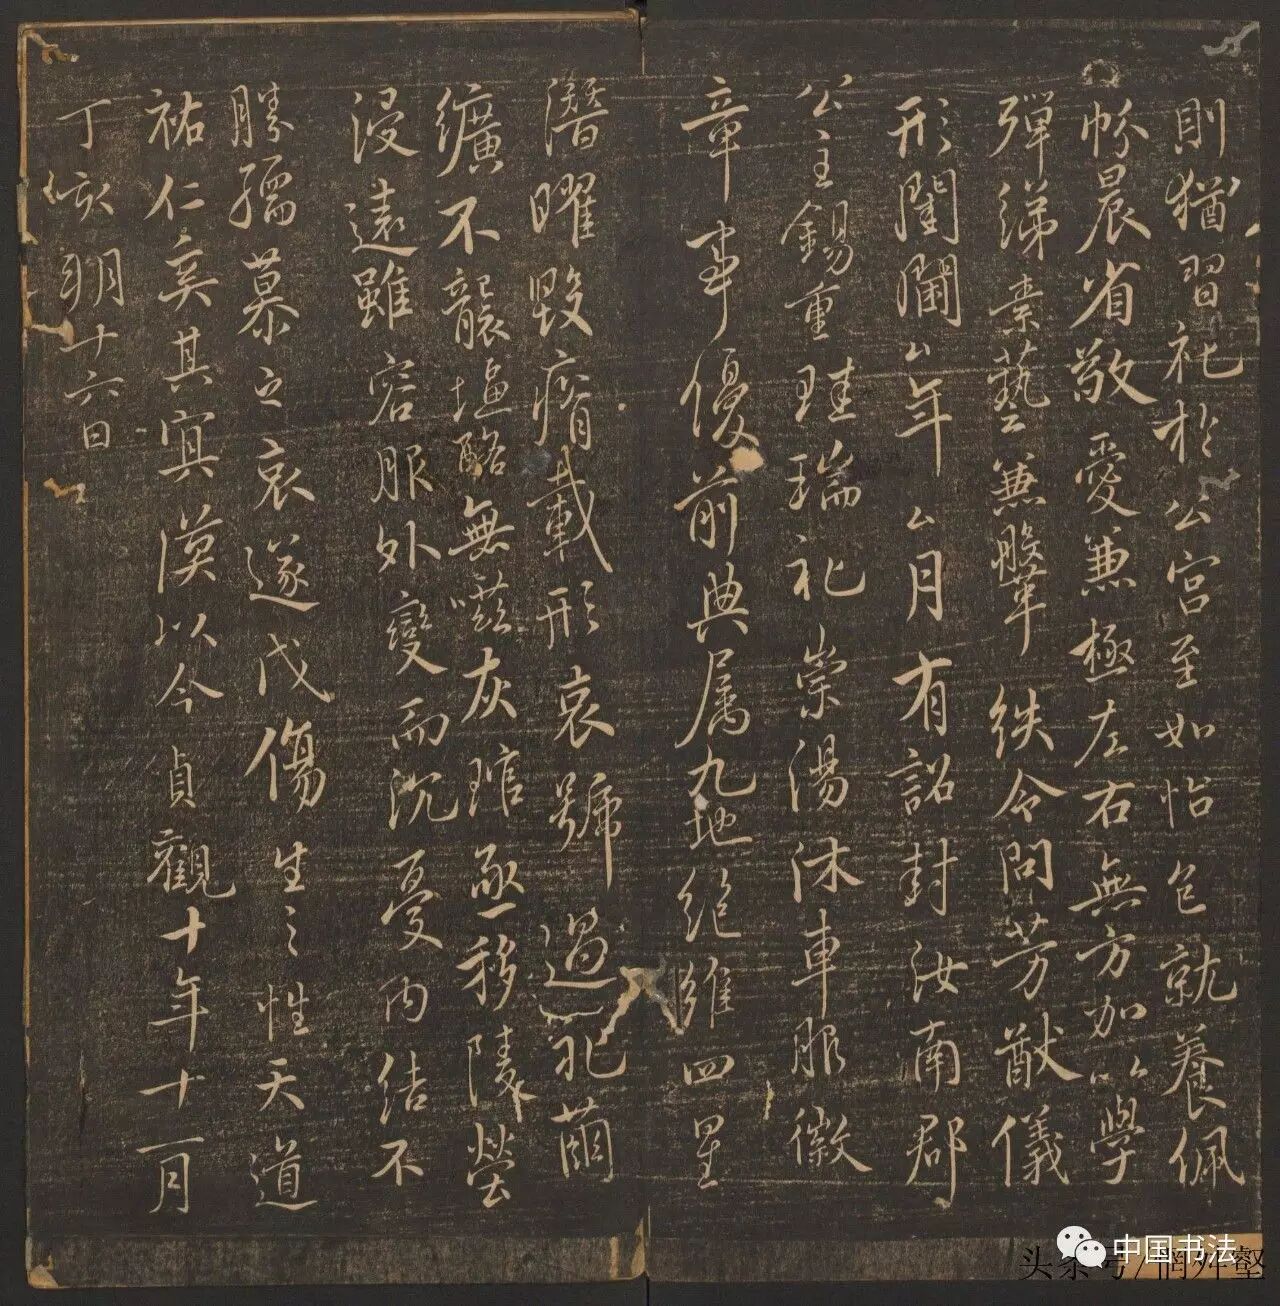 則猶習祀於公宮至如怡色就養佩
帉晨省敬愛兼極左右無方加以學
彈綈素藝兼鞶革紩令問芳猷儀
形閨閫厶年厶月有詔封汝南郡
公主錫重珪瑞祀崇湯沐車服徽
章事優前典属九地絕維四星
潛曜毀瘠載形哀號過祀繭
纊不襲塩酪無嗞灰琯亟移陵塋
浸遠雖容服外變而沈憂内結不
勝孺慕之哀遂戊傷生之性天道
祐仁奚其寘漠以今貞觀十年十一月
丁亥朔十六日
中国书法
头条号/